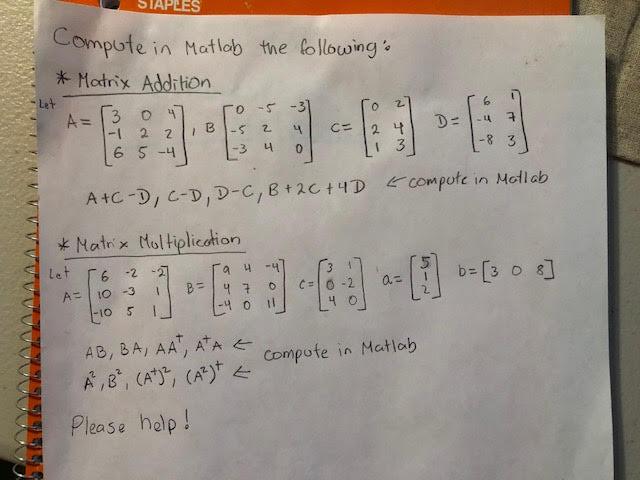 STAPLES
Compute in Matlab the following:
* Matrix Addition
Let
A = [3 0 4; -1 2 2; 6 5 -4], B [0 -5 -3; -5 2 4; -3 4 0] C = [0 2; 2 4; 1 3] D = [6 1; -4 7; -8 3]
A+C-D, C-D, D-C, B+2C+4D ← compute in Matlab
* Matrix Multiplication
Let
A = [6 -2 -2; 10 -3 1; -10 5 1] B = [9 4 -4; 4 7 0; -4 0 11] C = [3 1; 0 -2; 4 0] a = [5; 1; 2] b = [3 0 8]
AB, BA, AA^t, A^tA ← compute in Matlab
A², B², (A^t)², (A²)^t ←
Please help!